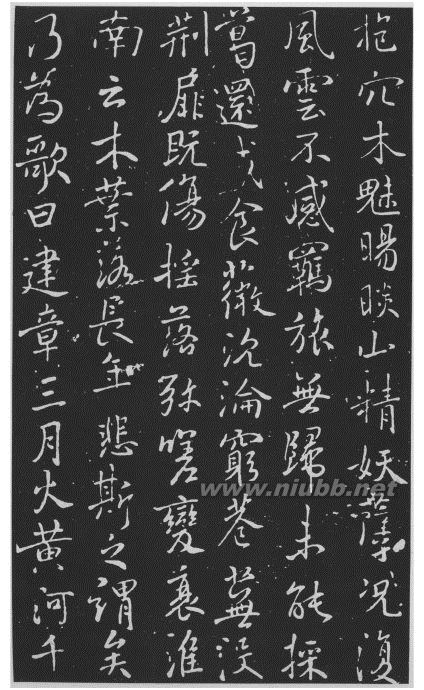 抱穴木魅睗睒山精妖孽况復
風雲不感羈旅無歸未能採
葛還成食薇沉淪窮巷蕪没
荆扉既傷摇落弥嗟變衰淮
南云木葉落長年悲斯之謂矣
乃為歌曰建章三月火黄河千
www.niubb.net